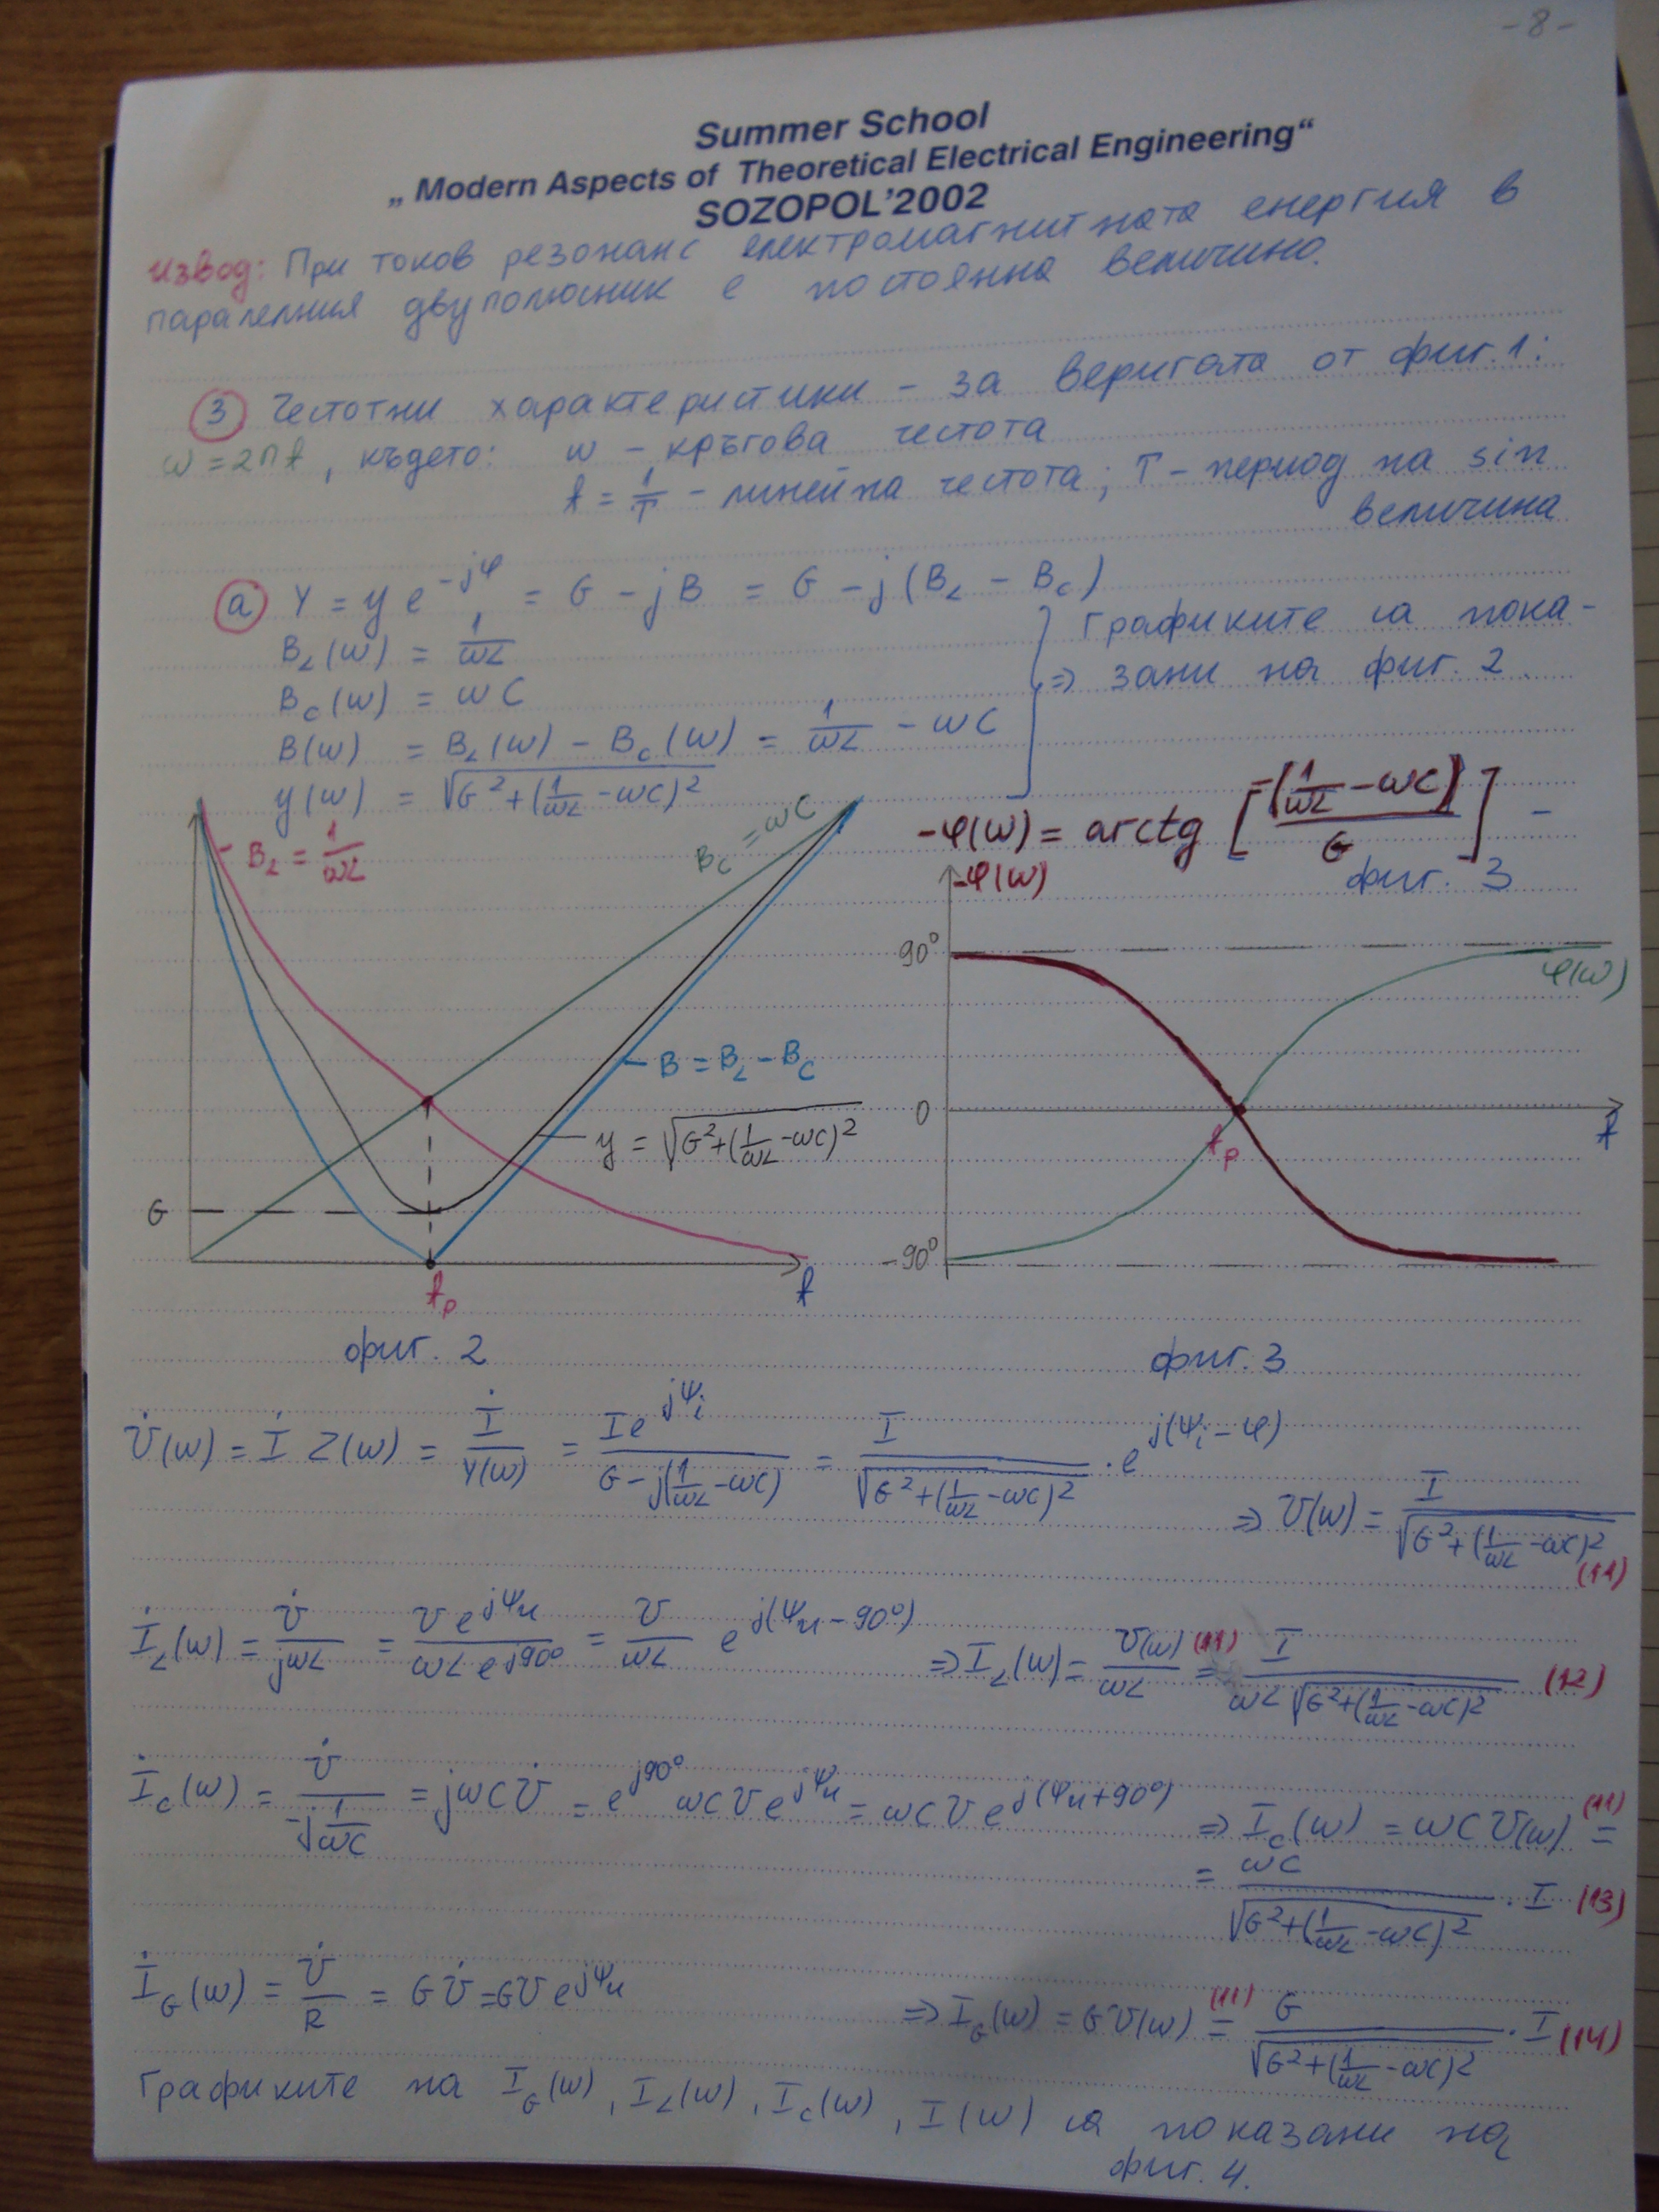 -8-
Summer School
„ Modern Aspects of Theoretical Electrical Engineering“
SOZOPOL’2002
Извод: При токов резонанс електромагнитната енергия в
паралелния двуполюсник е постоянна величина.
3 Честотни характеристики – за веригата от фиг. 1:
ω = 2πf, където: ω – кръгова честота
f = 1/T – линейна честота; T – период на sin
величина
а) Y = y e^(-jφ) = G - jB = G - j(B_L - B_C)
B_L(ω) = 1/ωL
B_C(ω) = ωC
B(ω) = B_L(ω) - B_C(ω) = 1/ωL - ωC
y(ω) = √(G² + (1/ωL - ωC)²)
⇒ Графиките са пока-
зани на фиг. 2.
-φ(ω) = arctg [-(1/ωL - ωC)/G] -
фиг. 3
B_L = 1/ωL
B_C = ωC
B = B_L - B_C
y = √(G² + (1/ωL - ωC)²)
G
f_p
f
фиг. 2
-φ(ω)
90°
φ(ω)
0
f_p
f
-90°
фиг. 3
U̇(ω) = İ Z(ω) = İ/Y(ω) = I e^(jψ_i)/(G - j(1/ωL - ωC)) = I/√(G² + (1/ωL - ωC)²) · e^(j(ψ_i - φ))
⇒ U(ω) = I/√(G² + (1/ωL - ωC)²) (11)
İ_L(ω) = U̇/jωL = U e^(jψ_u)/(ωL e^(j90°)) = U/ωL e^(j(ψ_u - 90°)) ⇒ I_L(ω) = U(ω)/ωL =(11) I/(ωL √(G² + (1/ωL - ωC)²)) (12)
İ_C(ω) = U̇/(-j 1/ωC) = jωC U̇ = e^(j90°) ωC U e^(jψ_u) = ωC U e^(j(ψ_u + 90°)) ⇒ I_C(ω) = ωC U(ω) =(11)
= ωC/√(G² + (1/ωL - ωC)²) · I (13)
İ_G(ω) = U̇/R = G U̇ = G U e^(jψ_u) ⇒ I_G(ω) = G U(ω) =(11) G/√(G² + (1/ωL - ωC)²) · I (14)
Графиките на I_G(ω), I_L(ω), I_C(ω), I(ω) са показани на
фиг. 4.